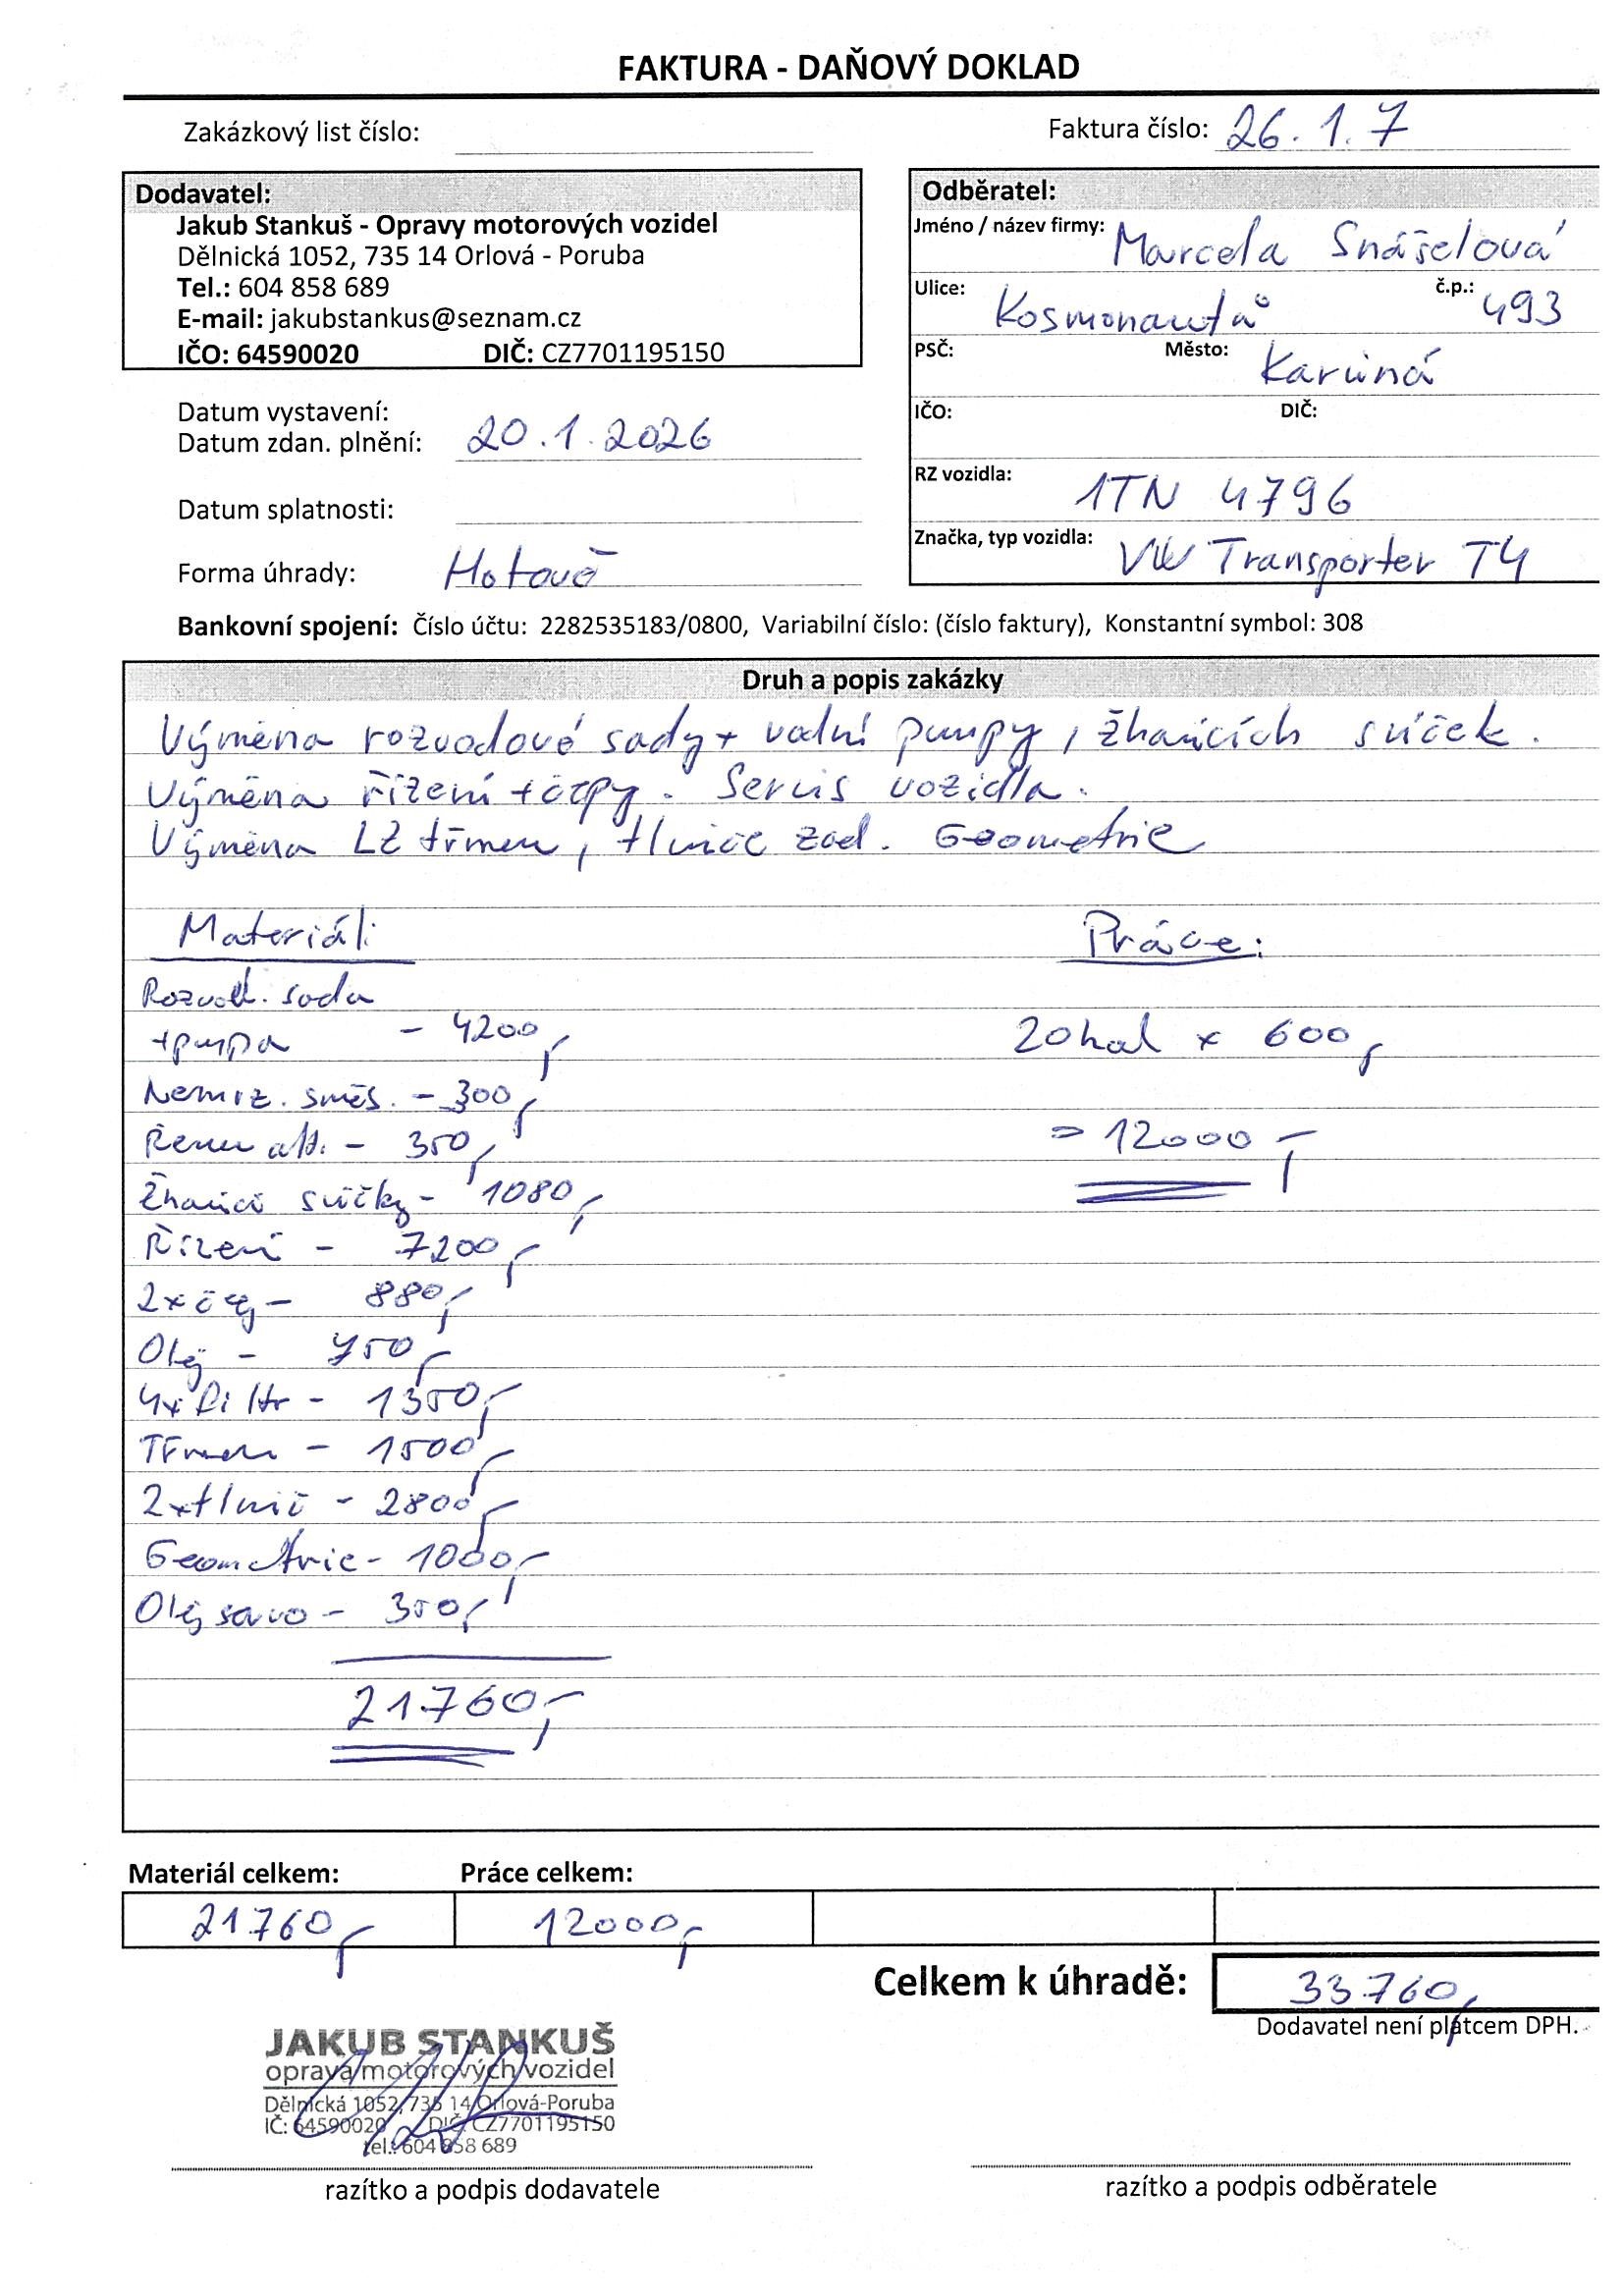 FAKTURA - DAŇOVÝ DOKLAD
Zakázkový list číslo:
Faktura číslo: 26.1.7
Dodavatel:
Jakub Stankuš - Opravy motorových vozidel
Dělnická 1052, 735 14 Orlová - Poruba
Tel.: 604 858 689
E-mail: jakubstankus@seznam.cz
IČO: 64590020 DIČ: CZ7701195150
Odběratel:
Jméno / název firmy: Marcela Snášelová
Ulice: Kosmonautů č.p.: 493
PSČ: Město: Karviná
IČO: DIČ:
RZ vozidla: 1TN 4796
Značka, typ vozidla: VW Transporter T4
Datum vystavení:
Datum zdan. plnění: 20.1.2026
Datum splatnosti:
Forma úhrady: Hotově
Bankovní spojení: Číslo účtu: 2282535183/0800, Variabilní číslo: (číslo faktury), Konstantní symbol: 308
Druh a popis zakázky
Výměna rozvodové sady + vodní pumpy, žhavících svíček.
Výměna řízení + čepy. Servis vozidla.
Výměna LZ třmen, tlmiče zad. Geometrie
Materiál:
Rozvod. sada
+pumpa - 4200,-
Nemrz. směs. - 300,-
Řemen alt. - 350,-
Žhavící svíčky - 1080,-
Řízení - 7200,-
2x čep - 880,-
Olej - 750,-
4x filtr - 1350,-
Třmen - 1500,-
2x tlmič - 2800,-
Geometrie - 1000,-
Olej servo - 350,-
21.760,-
Práce:
20hod x 600,-
= 12000,-
Materiál celkem: Práce celkem:
21.760,- 12000,-
Celkem k úhradě: 33.760,-
Dodavatel není plátcem DPH.
JAKUB STANKUŠ
oprava motorových vozidel
Dělnická 1052, 735 14 Orlová-Poruba
IČ: 64590020 DIČ: CZ7701195150
tel.: 604 858 689
razítko a podpis dodavatele
razítko a podpis odběratele